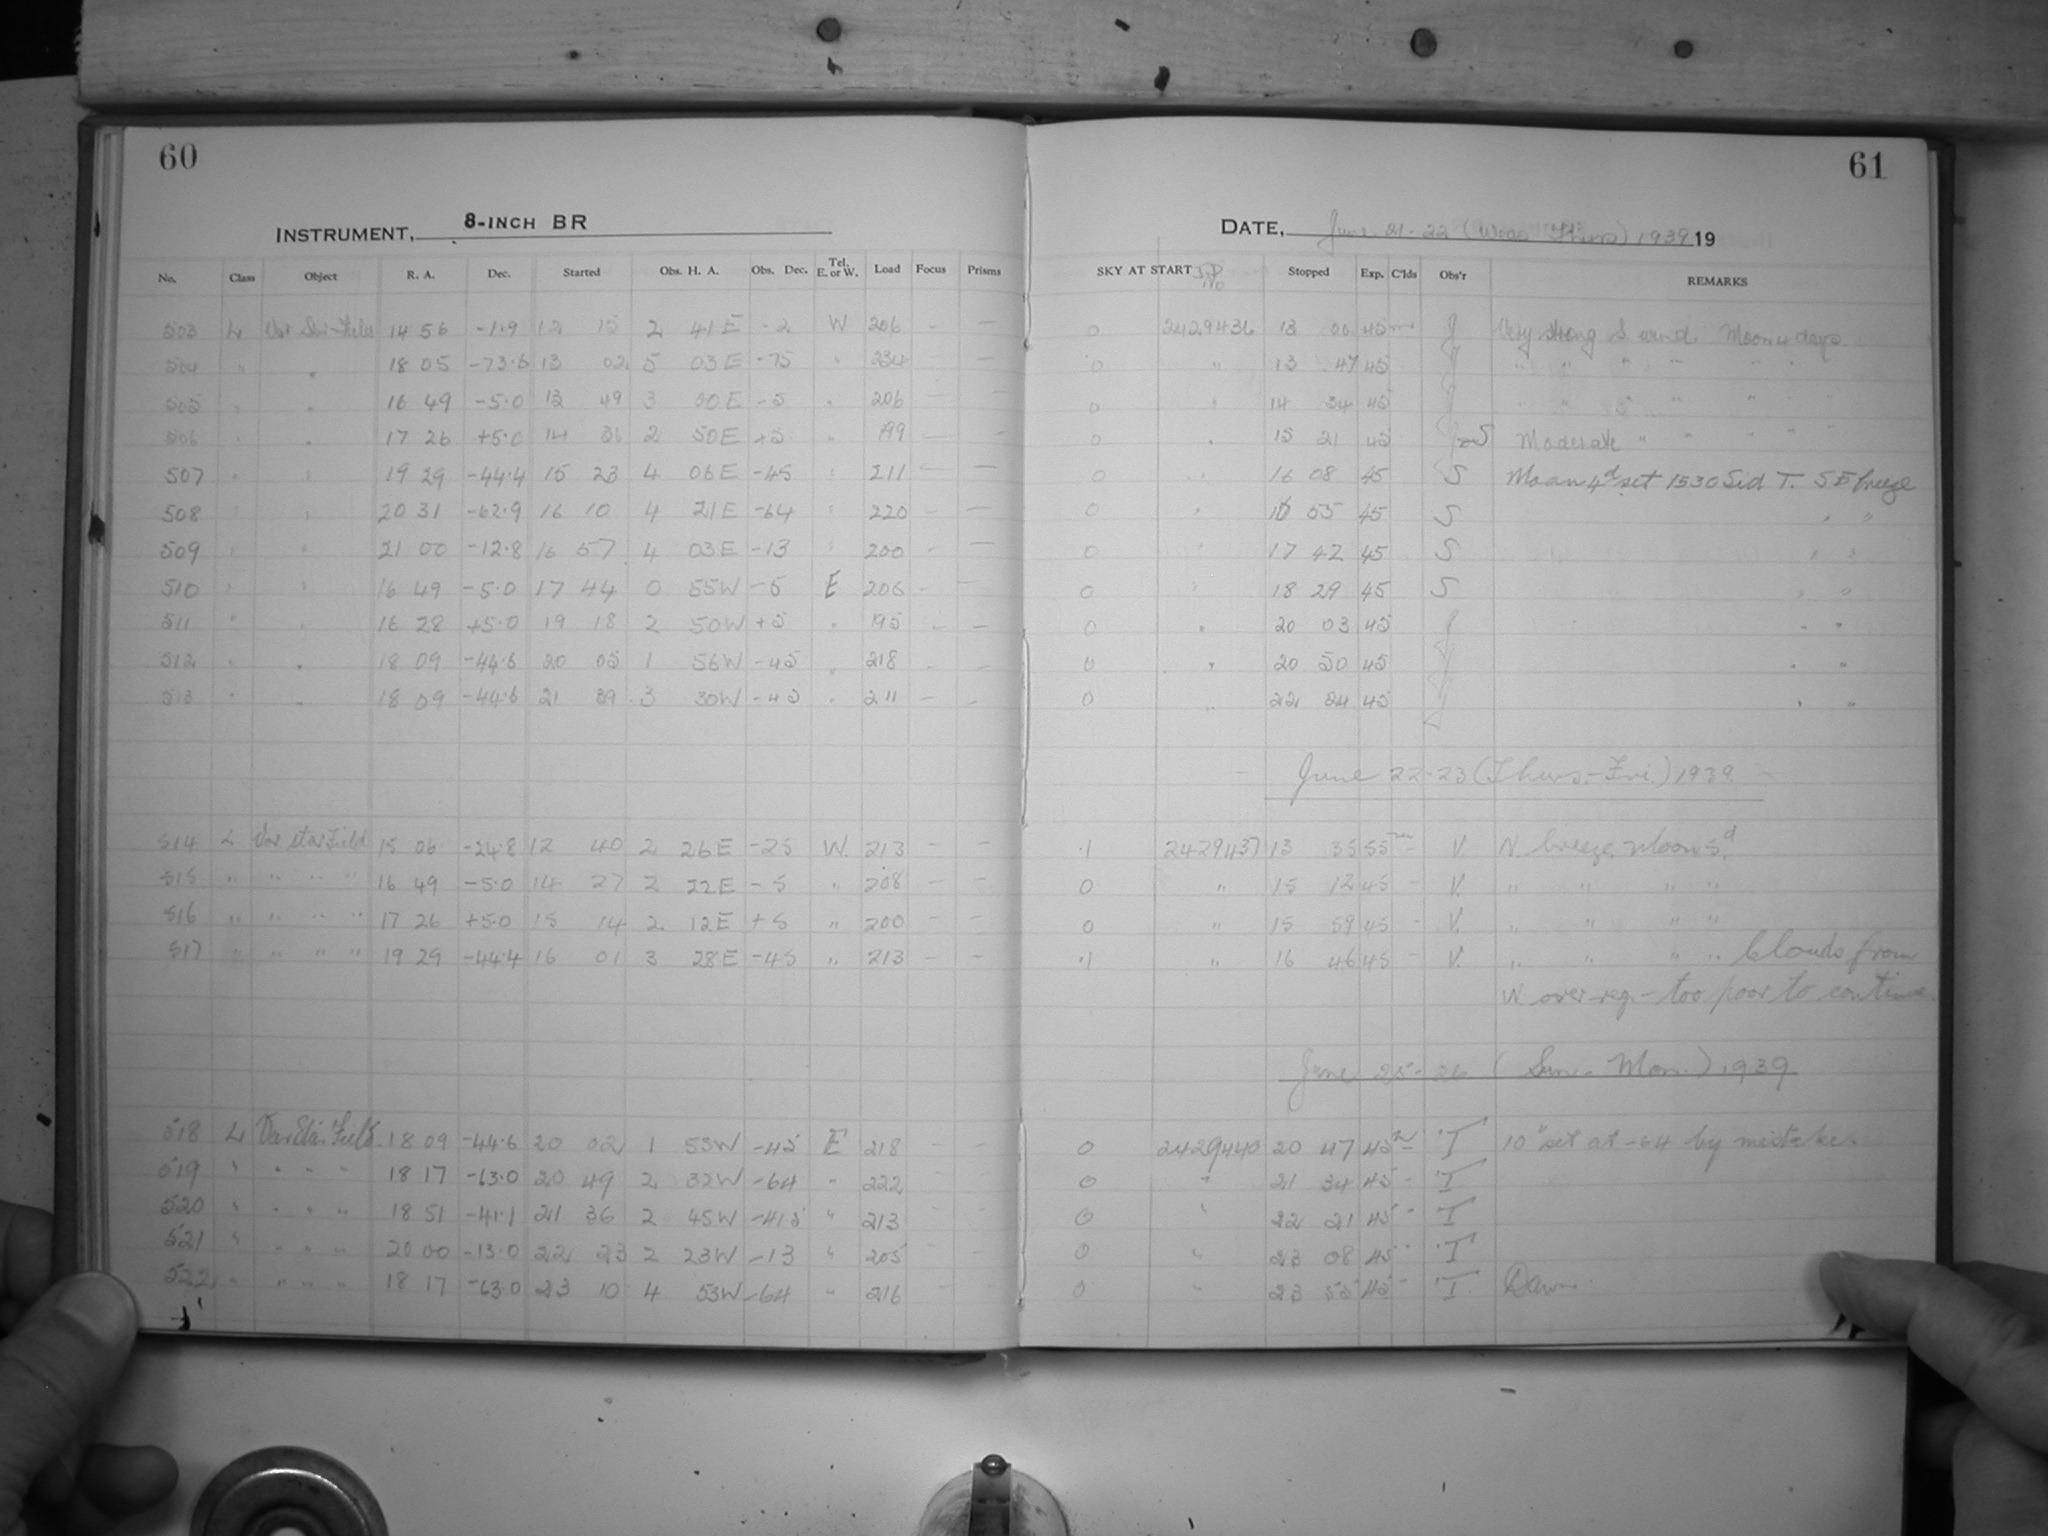 60
61
INSTRUMENT, 8-INCH BR
DATE, June 21-22 (Weds Thurs) 1939 19
No. Class Object R. A. Dec. Started Obs. H. A. Obs. Dec. Tel. E. or W. Load Focus Prisms SKY AT START J.D. No Stopped Exp. C'lds Obs'r REMARKS
503 L Var Star Field 14 56 -1.9 12 15 2 41 E -2 W 206 — — 0 2429436 13 00 45m J Very strong S wind Moon 4 days
504 " " 18 05 -73.6 13 02 5 03 E -75 " 234 — — 0 " 13 47 45 J " " " " " "
505 " " 16 49 -5.0 13 49 3 00 E -5 " 206 — — 0 " 14 34 45 J " " " " " "
506 " " 17 26 +5.0 14 36 2 50 E +5 " 199 — — 0 " 15 21 45 J S Moderate " " " "
507 " " 19 29 -44.4 15 23 4 06 E -45 " 211 — — 0 " 16 08 45 S Moon 4d set 1530 Sid T. SE breeze
508 " " 20 31 -62.9 16 10 4 21 E -64 " 220 — — 0 " 16 55 45 S " "
509 " " 21 00 -12.8 16 57 4 03 E -13 " 200 — — 0 " 17 42 45 S " "
510 " " 16 49 -5.0 17 44 0 55 W -5 E 206 — — 0 " 18 29 45 S " "
511 " " 16 28 +5.0 19 18 2 50 W +5 " 195 — — 0 " 20 03 45 J " "
512 " " 18 09 -44.6 20 05 1 56 W -45 " 218 — — 0 " 20 50 45 J " "
513 " " 18 09 -44.6 21 39 3 30 W -45 " 211 — — 0 " 22 24 45 J " "
June 22-23 (Thurs.-Fri.) 1939
514 L Var Star Field 15 06 -24.8 12 40 2 26 E -25 W. 213 — — .1 2429437 13 35 55m — V. N breeze, Moon 5d.
515 " " " " 16 49 -5.0 14 27 2 22 E -5 " 208 — — 0 " 15 12 45 — V. " " " "
516 " " " " 17 26 +5.0 15 14 2 12 E +5 " 200 — — 0 " 15 59 45 — V. " " " "
517 " " " " 19 29 -44.4 16 01 3 28 E -45 " 213 — — .1 " 16 46 45 — V. " " " " Clouds from
W over reg. - too poor to continue.
June 25-26 (Sun. - Mon.) 1939
518 L Var Star Field 18 09 -44.6 20 02 1 53 W -45 E 218 0 2429440 20 47 45m — T 10" set at -64 by mistake.
519 " " " " 18 17 -63.0 20 49 2 32 W -64 " 222 0 " 21 34 45 — T
520 " " " " 18 51 -41.1 21 36 2 45 W -41.5 " 213 0 " 22 21 45 — T
521 " " " " 20 00 -13.0 22 23 2 23 W -13 " 205 0 " 23 08 45 — T
522 " " " " 18 17 -63.0 23 10 4 53 W -64 " 216 0 " 23 55 45 — T Dawn.